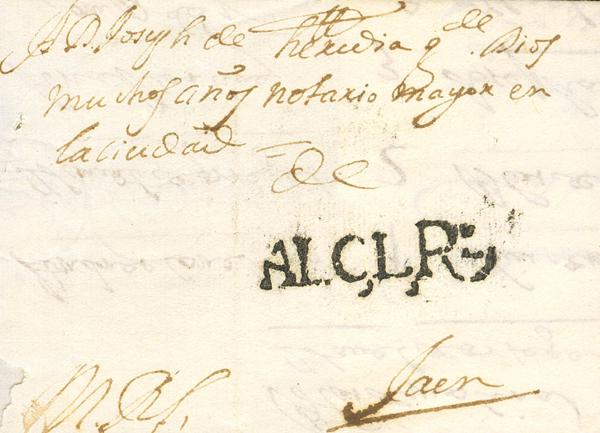 A D. Joseph de Heredia g.de Dios
muchos años notario mayor en
la ciudad = de
ALC,L,R
Jaen